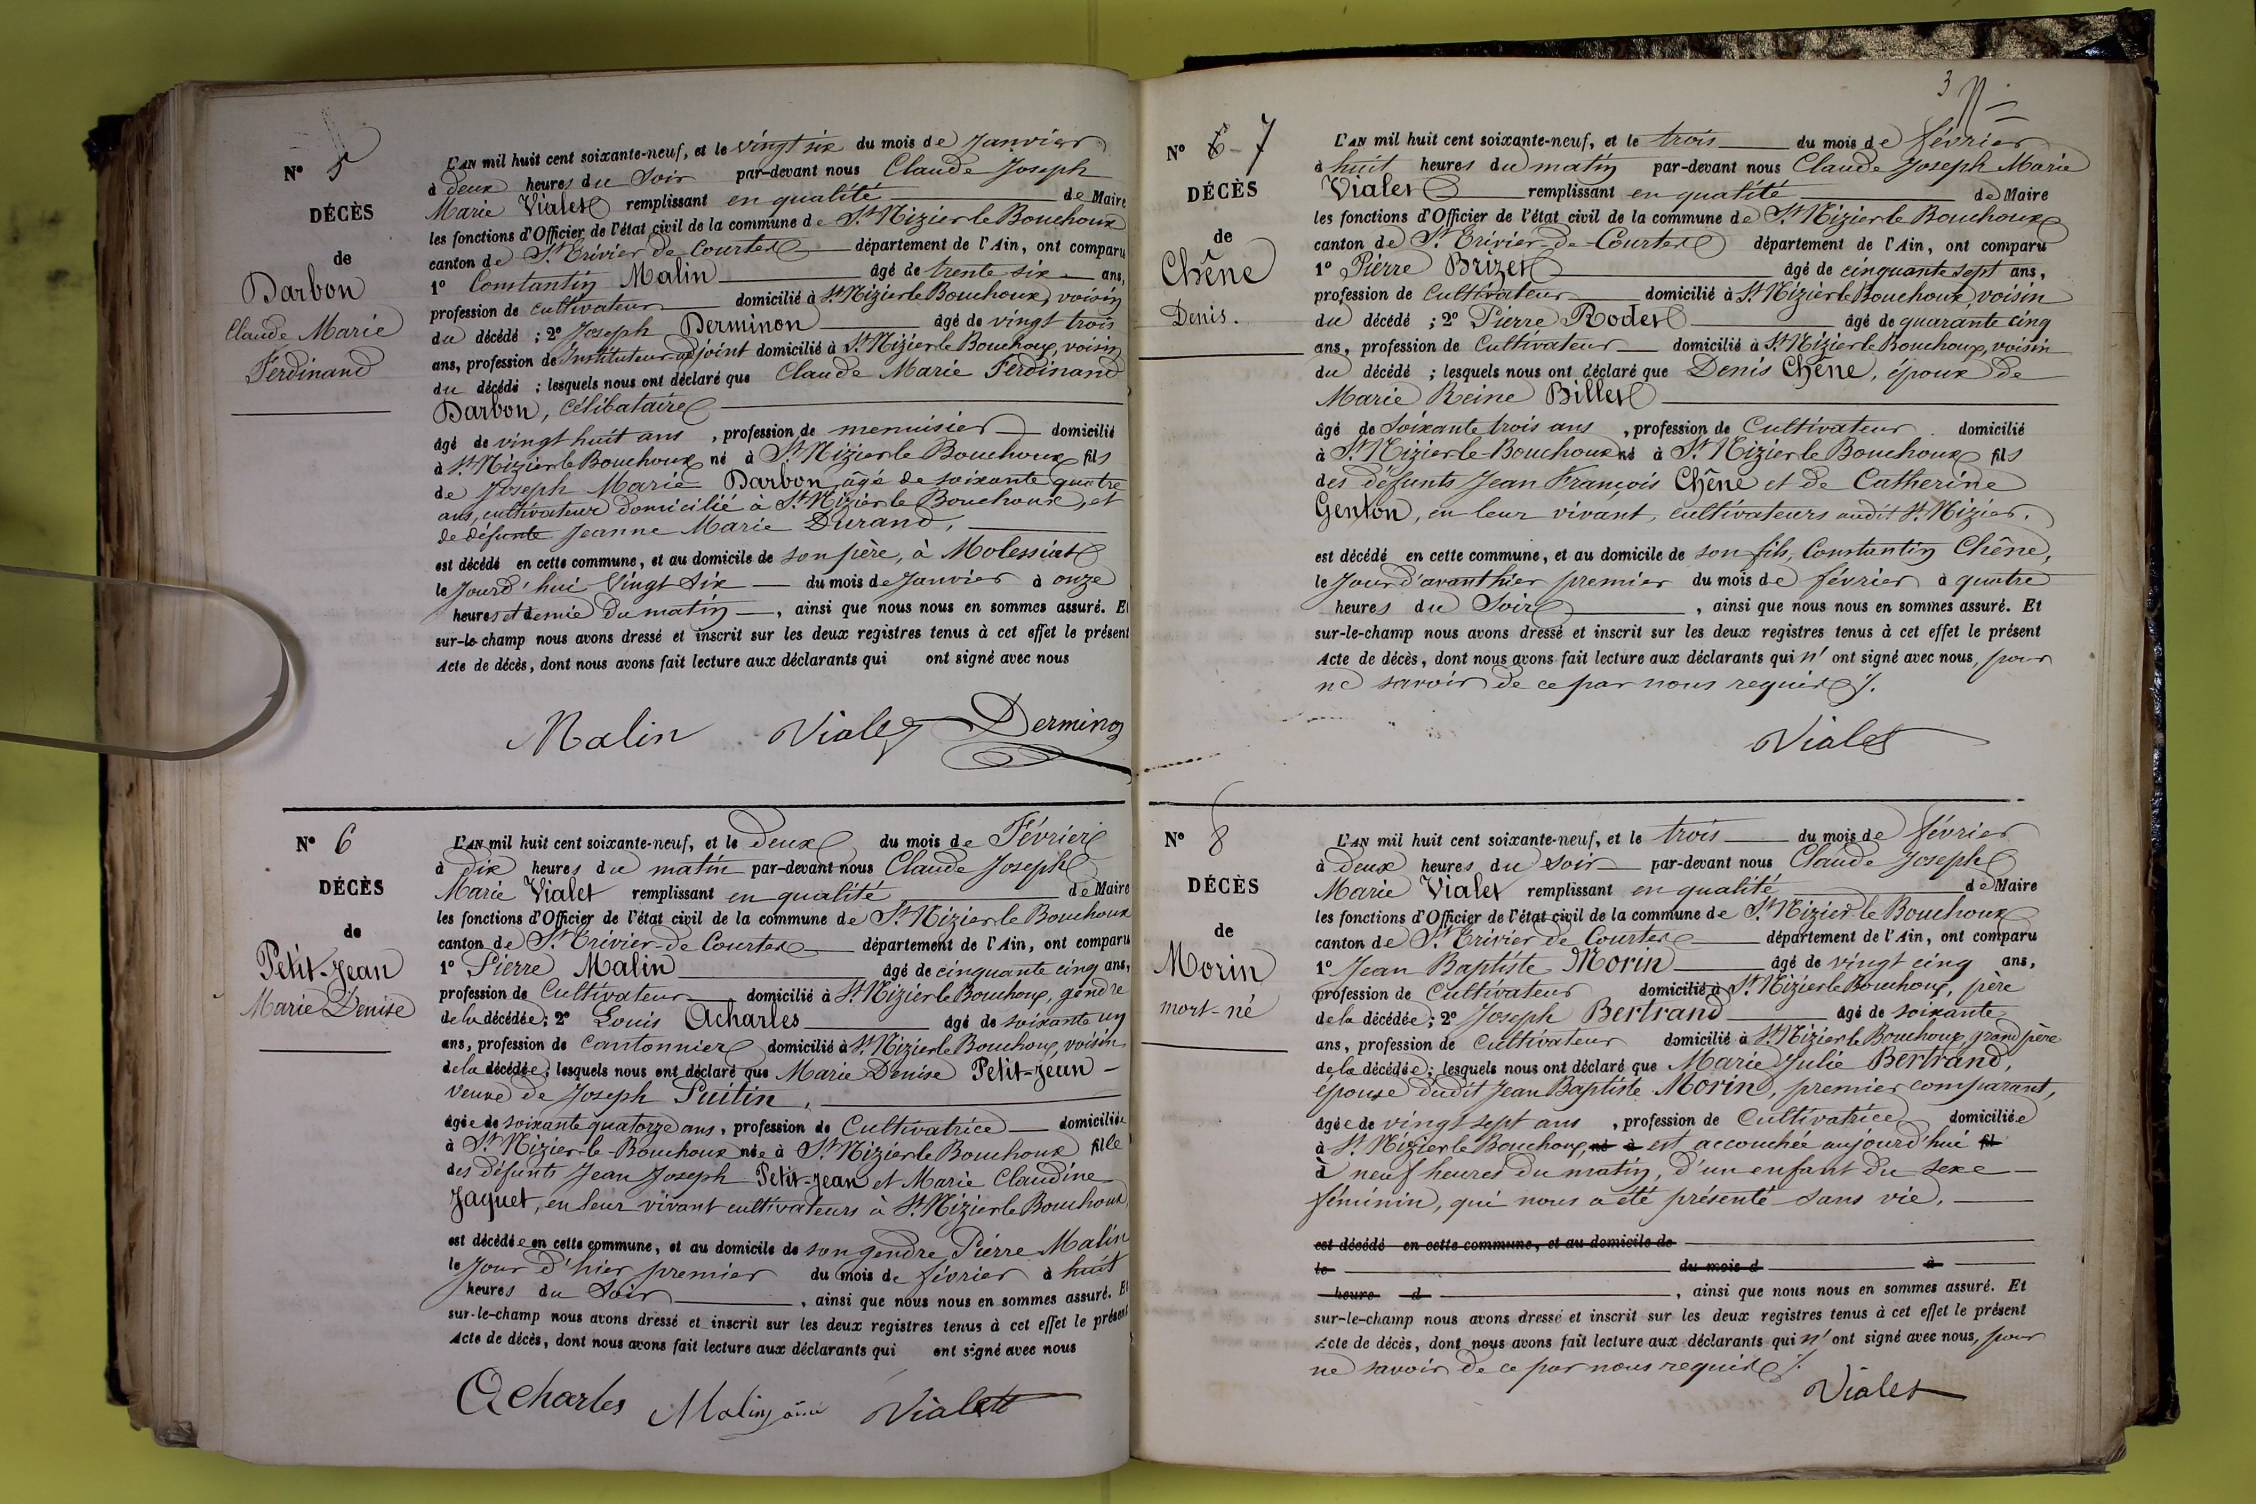 N° 5
DÉCÈS
de
Darbon
Claude Marie
Ferdinand
L'AN mil huit cent soixante-neuf, et le vingt six du mois de Janvier
à deux heures du Soir par-devant nous Claude Joseph
Marie Vialet remplissant en qualité de Maire
les fonctions d'Officier de l'état civil de la commune de St Nizier le Bouchoux
canton de St Trivier de Courtes département de l'Ain, ont comparu
1° Constantin Malin âgé de trente six ans,
profession de cultivateur domicilié à St Nizier le Bouchoux, voisin
du décédé ; 2° Joseph Derminon âgé de vingt trois
ans, profession de Instituteur adjoint domicilié à St Nizier le Bouchoux, voisin
du décédé ; lesquels nous ont déclaré que Claude Marie Ferdinand
Darbon, célibataire
âgé de vingt huit ans , profession de menuisier domicilié
à St Nizier le Bouchoux né à St Nizier le Bouchoux fils
de Joseph Marie Darbon âgé de soixante quatre
ans, cultivateur domicilié à St Nizier le Bouchoux, et
de défunte Jeanne Marie Durand,
est décédé en cette commune, et au domicile de son père, à Molessiat
le Jourd'hui Vingt Six du mois de Janvier à onze
heures et demie du matin , ainsi que nous nous en sommes assuré. Et
sur-le-champ nous avons dressé et inscrit sur les deux registres tenus à cet effet le présent
Acte de décès, dont nous avons fait lecture aux déclarants qui ont signé avec nous
Malin Vialet Derminon
N° 6
DÉCÈS
de
Petit-Jean
Marie Denise
L'AN mil huit cent soixante-neuf, et le deux du mois de Février
à dix heures du matin par-devant nous Claude Joseph
Marie Vialet remplissant en qualité de Maire
les fonctions d'Officier de l'état civil de la commune de St Nizier le Bouchoux
canton de St Trivier-de Courtes département de l'Ain, ont comparu
1° Pierre Malin âgé de cinquante cinq ans,
profession de Cultivateur domicilié à St Nizier le Bouchoux, gendre
de la décédée ; 2° Louis Acharles âgé de soixante un
ans, profession de Cantonnier domicilié à St Nizier le Bouchoux, voisin
de la décédée ; lesquels nous ont déclaré que Marie Denise Petit-Jean -
veuve de Joseph Puitin,
âgée de soixante quatorze ans, profession de Cultivatrice domiciliée
à St Nizier-le-Bouchoux née à St Nizier le Bouchoux fille
des défunts Jean Joseph Petit-Jean et Marie Claudine
Jaquet, en leur vivant cultivateurs à St Nizier le Bouchoux,
est décédée en cette commune, et au domicile de son gendre Pierre Malin
le Jour d'hier premier du mois de février à huit
heures du Soir , ainsi que nous nous en sommes assuré. Et
sur-le-champ nous avons dressé et inscrit sur les deux registres tenus à cet effet le présent
Acte de décès, dont nous avons fait lecture aux déclarants qui ont signé avec nous
Acharles Malin aîné Vialet
3
N° 6 - 7
DÉCÈS
de
Chêne
Denis.
L'AN mil huit cent soixante-neuf, et le trois du mois de février
à huit heures du matin par-devant nous Claude Joseph Marie
Vialet remplissant en qualité de Maire
les fonctions d'Officier de l'état civil de la commune de St Nizier le Bouchoux
canton de St Trivier-de-Courtes département de l'Ain, ont comparu
1° Pierre Brizet âgé de cinquante sept ans,
profession de Cultivateur domicilié à St Nizier le Bouchoux, voisin
du décédé ; 2° Pierre Rodet âgé de quarante cinq
ans, profession de Cultivateur domicilié à St Nizier le Bouchoux, voisin
du décédé ; lesquels nous ont déclaré que Denis Chêne, époux de
Marie Reine Billet
âgé de Soixante trois ans , profession de Cultivateur domicilié
à St Nizier-le-Bouchoux né à St Nizier le Bouchoux fils
des défunts Jean François Chêne et de Catherine
Genton, en leur vivant, cultivateurs audit St Nizier.
est décédé en cette commune, et au domicile de son fils, Constantin Chêne,
le Jour d'avant hier premier du mois de février à quatre
heures du Soir , ainsi que nous nous en sommes assuré. Et
sur-le-champ nous avons dressé et inscrit sur les deux registres tenus à cet effet le présent
Acte de décès, dont nous avons fait lecture aux déclarants qui n'ont signé avec nous, pour
ne savoir de ce par nous requis /.
Vialet
N° 8
DÉCÈS
de
Morin
mort-né
L'AN mil huit cent soixante-neuf, et le trois du mois de février
à deux heures du soir par-devant nous Claude Joseph
Marie Vialet remplissant en qualité de Maire
les fonctions d'Officier de l'état civil de la commune de St Nizier-le Bouchoux
canton de St Trivier de Courtes département de l'Ain, ont comparu
1° Jean Baptiste Morin âgé de vingt cinq ans,
profession de Cultivateur domicilié à St Nizier le Bouchoux, père
de la décédée ; 2° Joseph Bertrand âgé de soixante
ans, profession de Cultivateur domicilié à St Nizier le Bouchoux, grand père
de la décédée ; lesquels nous ont déclaré que Marie Julie Bertrand,
épouse dudit Jean Baptiste Morin, premier comparant,
âgée de vingt sept ans , profession de Cultivatrice domiciliée
à St Nizier le Bouchoux, né à est accouchée aujourd'hui fil
à neuf heures du matin, d'un enfant du sexe -
féminin, qui nous a été présenté sans vie.
est décédé en cette commune, et au domicile de
le du mois d à
heure d , ainsi que nous nous en sommes assuré. Et
sur-le-champ nous avons dressé et inscrit sur les deux registres tenus à cet effet le présent
Acte de décès, dont nous avons fait lecture aux déclarants qui n'ont signé avec nous, pour
ne savoir de ce par nous requis /.
Vialet